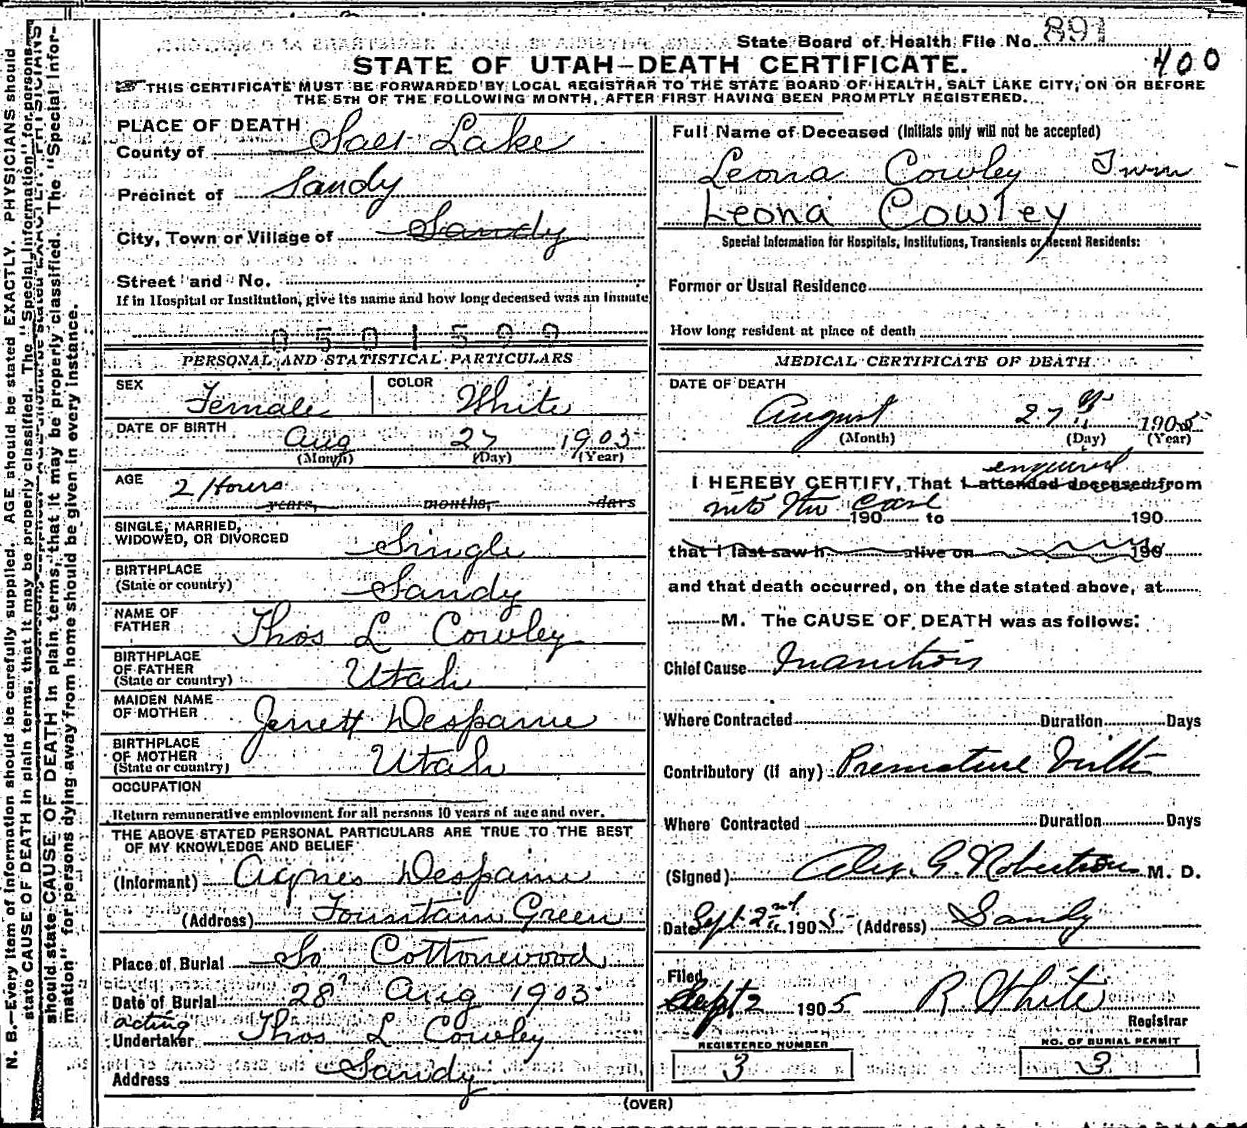 State Board of Health File No. 891
400
STATE OF UTAH—DEATH CERTIFICATE.
THIS CERTIFICATE MUST BE FORWARDED BY LOCAL REGISTRAR TO THE STATE BOARD OF HEALTH, SALT LAKE CITY, ON OR BEFORE
THE 5TH OF THE FOLLOWING MONTH, AFTER FIRST HAVING BEEN PROMPTLY REGISTERED.
PLACE OF DEATH
County of Salt Lake
Precinct of Sandy
City, Town or Village of Sandy
Street and No.
If in Hospital or Institution, give its name and how long deceased was an inmate
0501599
PERSONAL AND STATISTICAL PARTICULARS
SEX Female COLOR White
DATE OF BIRTH Aug 27 1905
(Month) (Day) (Year)
AGE 2 Hours
years, months, days
SINGLE, MARRIED,
WIDOWED, OR DIVORCED Single
BIRTHPLACE
(State or country) Sandy
NAME OF
FATHER Thos L Cowley
BIRTHPLACE
OF FATHER
(State or country) Utah
MAIDEN NAME
OF MOTHER Jenett Despaine
BIRTHPLACE
OF MOTHER
(State or country) Utah
OCCUPATION
Return remunerative employment for all persons 10 years of age and over.
THE ABOVE STATED PERSONAL PARTICULARS ARE TRUE TO THE BEST
OF MY KNOWLEDGE AND BELIEF
(Informant) Agnes Despaine
(Address) Fountain Green
Place of Burial So Cottonwood
Date of Burial 28 Aug 1905
acting
Undertaker Thos L Cowley
Address Sandy
Full Name of Deceased (Initials only will not be accepted)
Leona Cowley Twin
Leona Cowley
Special Information for Hospitals, Institutions, Transients or Recent Residents:
Former or Usual Residence
How long resident at place of death
MEDICAL CERTIFICATE OF DEATH
DATE OF DEATH
August 27th 1905
(Month) (Day) (Year)
enquired
I HEREBY CERTIFY, That I attended deceased from
into the case 190 to 190
that I last saw h alive on 190
and that death occurred, on the date stated above, at
M. The CAUSE OF DEATH was as follows:
Chief Cause Inanition
Where Contracted Duration Days
Contributory (if any) Premature birth
Where Contracted Duration Days
(Signed) Alex. G. Robertson M. D.
Date Sept 2nd 1905 (Address) Sandy
Filed
Sept 2 1905 R. White
Registrar
REGISTERED NUMBER
3
NO. OF BURIAL PERMIT
3
(OVER)
N. B.—Every item of information should be carefully supplied. AGE should be stated EXACTLY. PHYSICIANS should
state CAUSE OF DEATH in plain terms, that it may be properly classified. The "Special Information" for persons
should state CAUSE OF DEATH in plain terms, that it may be properly classified. The "Special Infor-
mation" for persons dying away from home should be given in every instance.